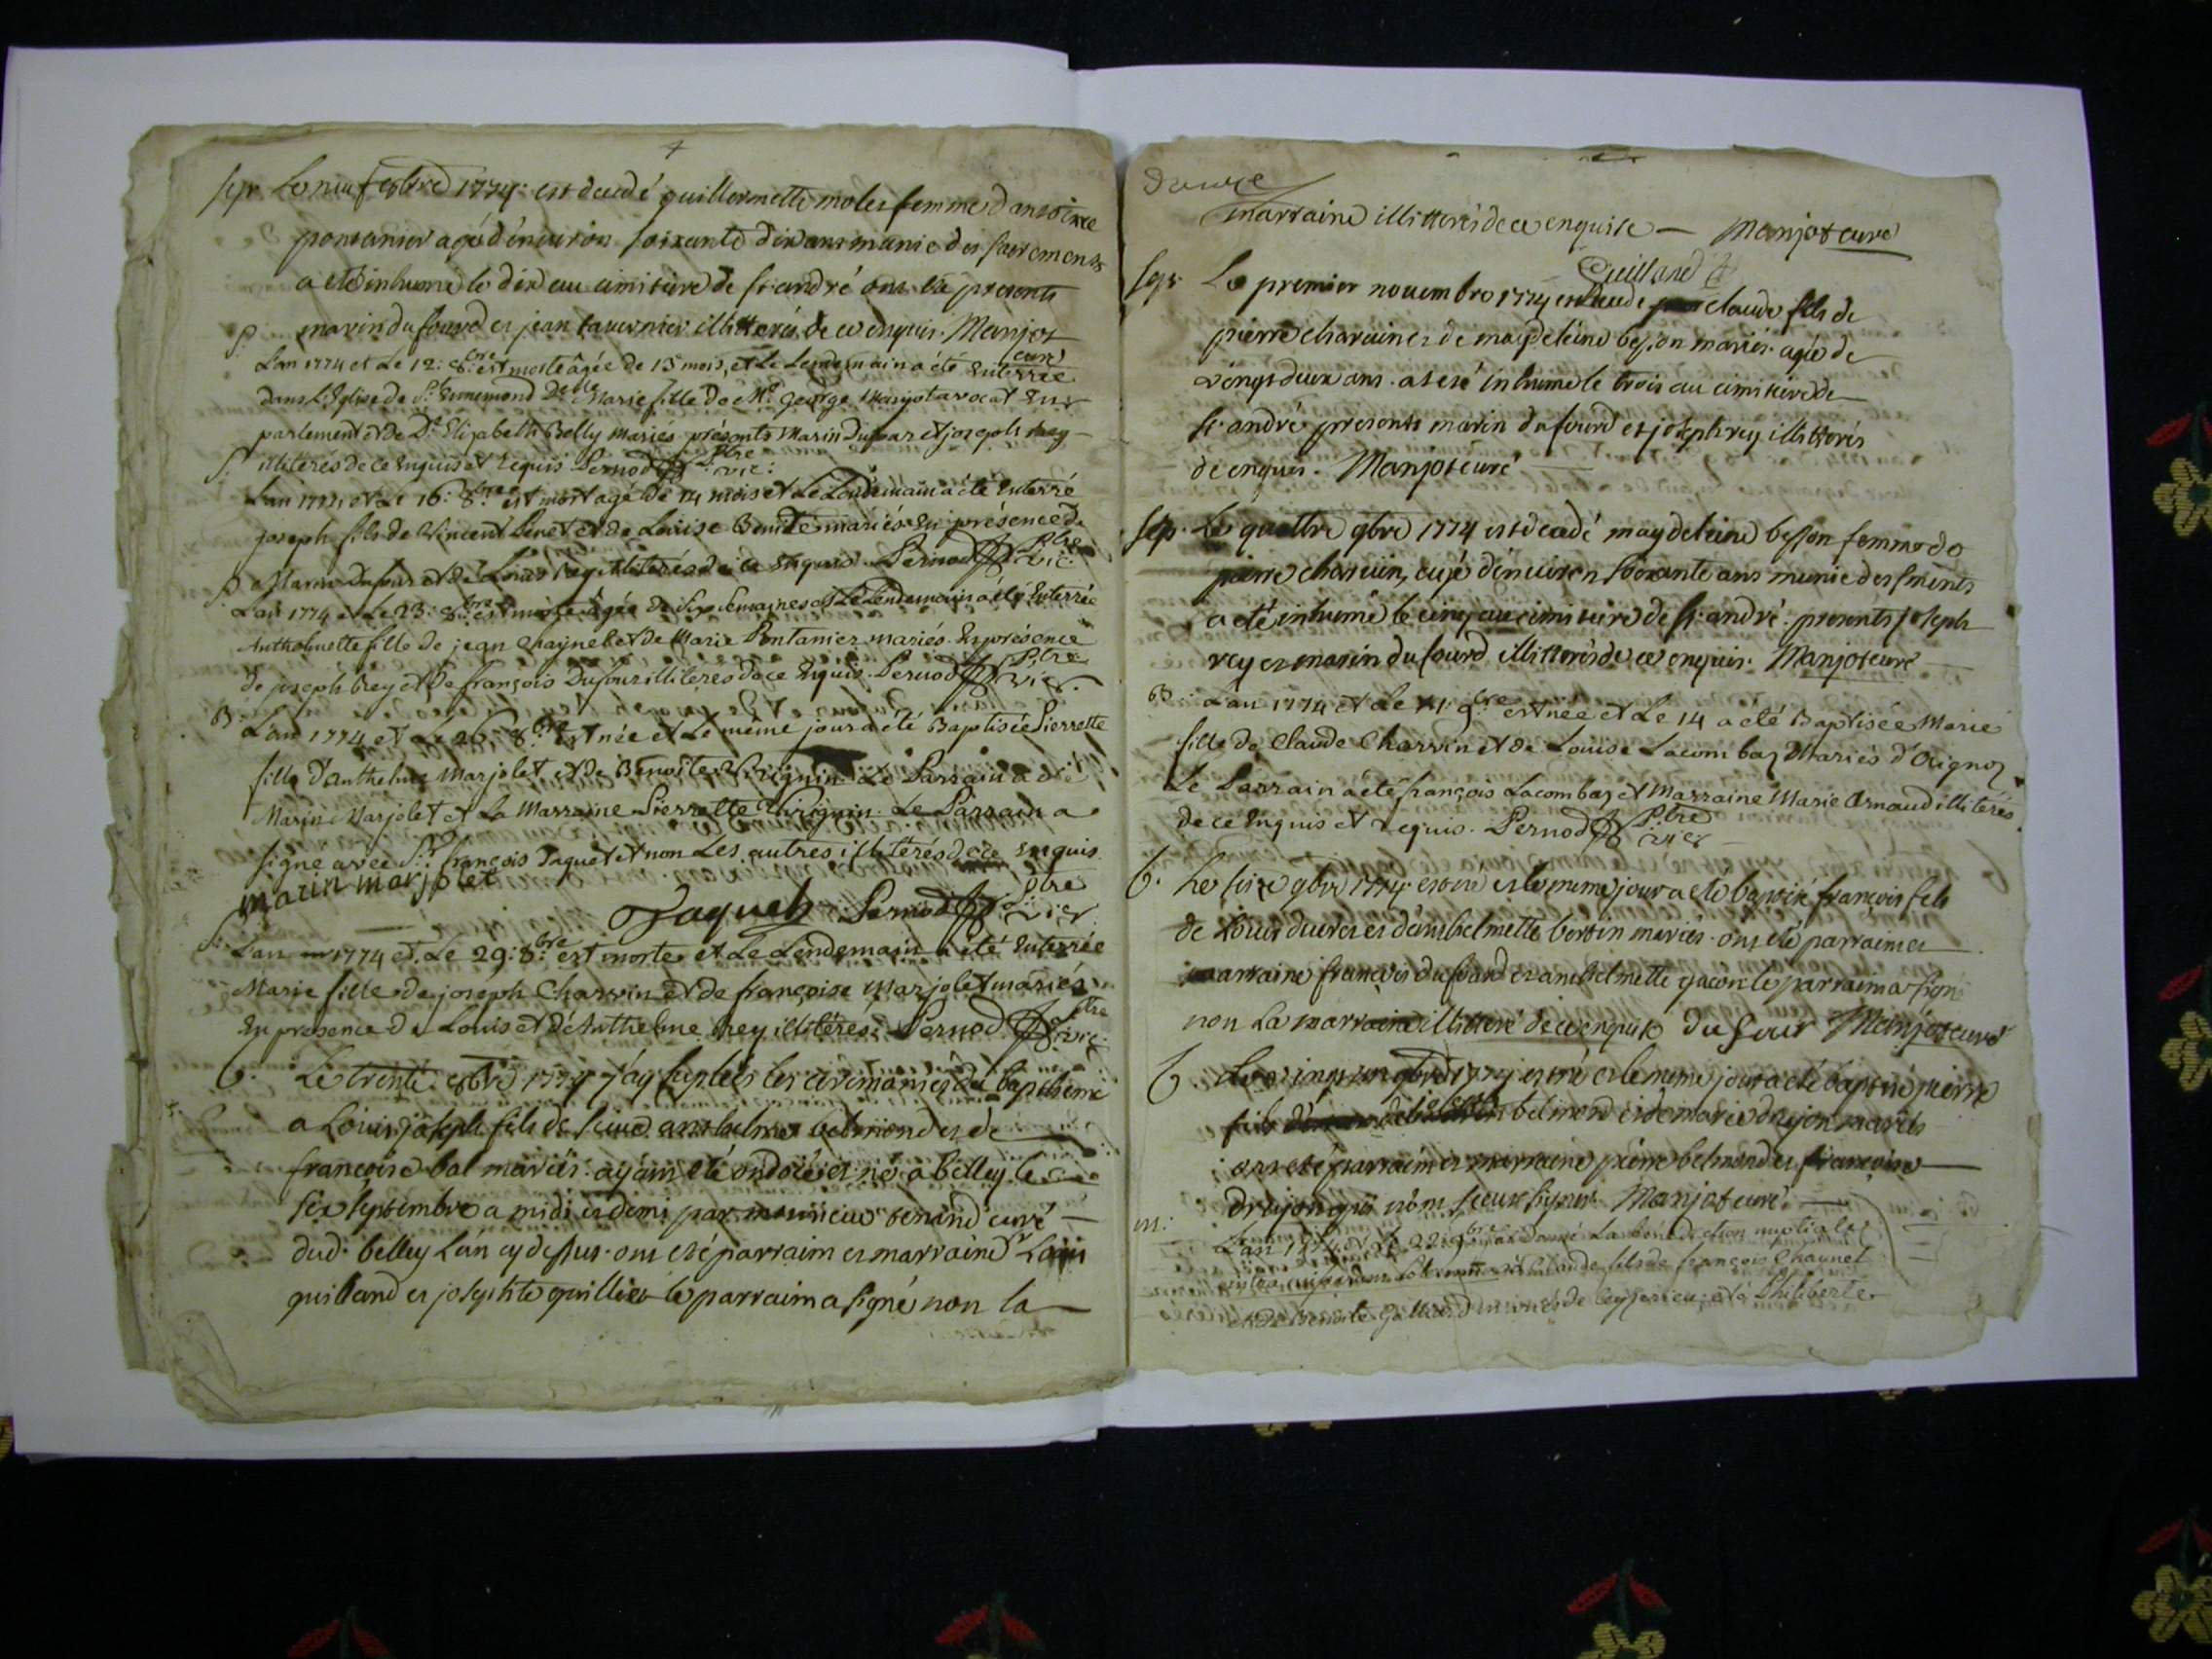 4
sep. Le neuf 8bre 1774: est decedé guillermette molet femme d'antoine
pontanier agé d'environ soixante dix ans munie des sacrements
a eté inhumé le dix au cimitiere de st andré ont eté presents
marin dufourd et jean tavernier illitterés de ce enquis. Manjot
curé
S. Lan 1774 et Le 12: 8bre est morte âgée de 13 mois, et Le Lendemain a été Enterrée
dans L'Eglise de St. Ennemond Delle Marie fille de Me George Manjot avocat En
parlement et de De Elizabeth Belly Mariés présents Marin Dufour et joseph Rey
illiterés de ce Enquis et Requis Pernod Ptre vic:
S. Lan 1774 et Le 16: 8bre est mort agé de 14 mois et Le Lendemain a été Enterré
joseph fils de Vincent Penet et de Louise mariés En présence de
Marin Dufour et de Louis Rey illiterés de ce Enquis Pernod Ptre vic:
S. Lan 1774 et Le 23: 8bre est morte âgée de Six Semaines et Le Lendemain a été Enterrée
Anthelmette fille de jean Chaynel et de Marie Pontanier mariés. En présence
de joseph Rey et de françois Dufour illiterés de ce Enquis. Pernod Ptre vic.
B. Lan 1774 et Le 26: 8bre Est née et Le même jour a été Baptisée Pierrette
fille d'anthelme Marjolet et de Benoite Virignin. Le Parrain a été
Marin Marjolet et La Marraine Pierrette Virignin. Le Parrain a
signé avec Sr. françois Jaquet et non Les autres illiterés de ce Enquis
marin marjolet
Jaquet Pernod Ptre vier
S. Lan 1774 et Le 29: 8bre est morte et Le Lendemain a été Enterrée
Marie fille de joseph Charvin et de françoise Marjolet mariés
En presence de Louis et d'Anthelme Rey illiterés. Pernod Ptre vic:
b. Le trente 8bre 1774 j'ay supleés les ceremonies du baptheme
a Louis joseph fils de sieur anthelme belmond et de
françoise bal mariés. ayant eté ondoié et né a belley le
six septembre a midi et demi par monsieur curé
dud. belley L'an cy dessus. ont eté parraim et marraine Sr Louis
guilland et josephte le parraim a signé non la
douze
marraine illitterés de ce enquise — Manjot curé
Guilland
sep. Le premier novembre 1774 est decedé claude fils de
pierre charvin et de magdeleine besson mariés. agé de
vingt deux ans. a eté inhumé le trois au cimitiere de
st. andré presents marin dufourd et joseph rey illitterés
de enquis. Manjot curé
sep. Le quattre 9bre 1774 est decedé magdeleine besson femme de
pierre charvin, agé d'environ soixante ans munie des sments
a eté inhumé le cinq au cimitiere de st. andré: presents joseph
rey et marin dufourd illitterés de ce enquis. Manjot curé
B. Lan 1774 et Le 11: 9bre est née et Le 14 a été Baptisée Marie
fille de Claude Charvin et de Louise Lacombaz Mariés d'Oignoz
Le Parrain a été françois Lacombaz et Marraine Marie Arnaud illiterés
de ce Enquis et requis. Pernod Ptre vier
b. Le seize 9bre 1774 est né et le meme jour a eté baptisé françois fils
de Louis et d'anthelmette bertin mariés. ont eté parraim et
marraine françois dufourd et anthelmette le parraim a signé
non La marraine illitteré de ce enquise dufour Manjot curé
b Le vingt un 9bre 1774 est né et le meme jour a eté baptisé pierre
fils belmond et de marie drujon mariés
ont eté parraim et marraine pierre belmond et françoise
drujon qui n'ont sceus signer. Manjot curé
m: Lan 1774 et Le 22 9bre donné La bénédiction nuptiale
à Claude fils de françois Chaynel
et de Benoite Galliard mariés de Ceyserieu et à Philiberte